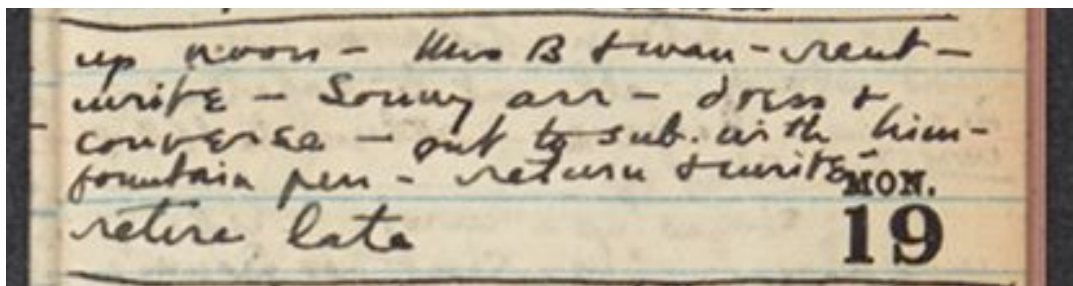 up noon - Mrs B & man - rent -
write - Sonny arr - dress &
converse - out to sub. with him -
fountain pen - return & write -
MON.
retire late
19